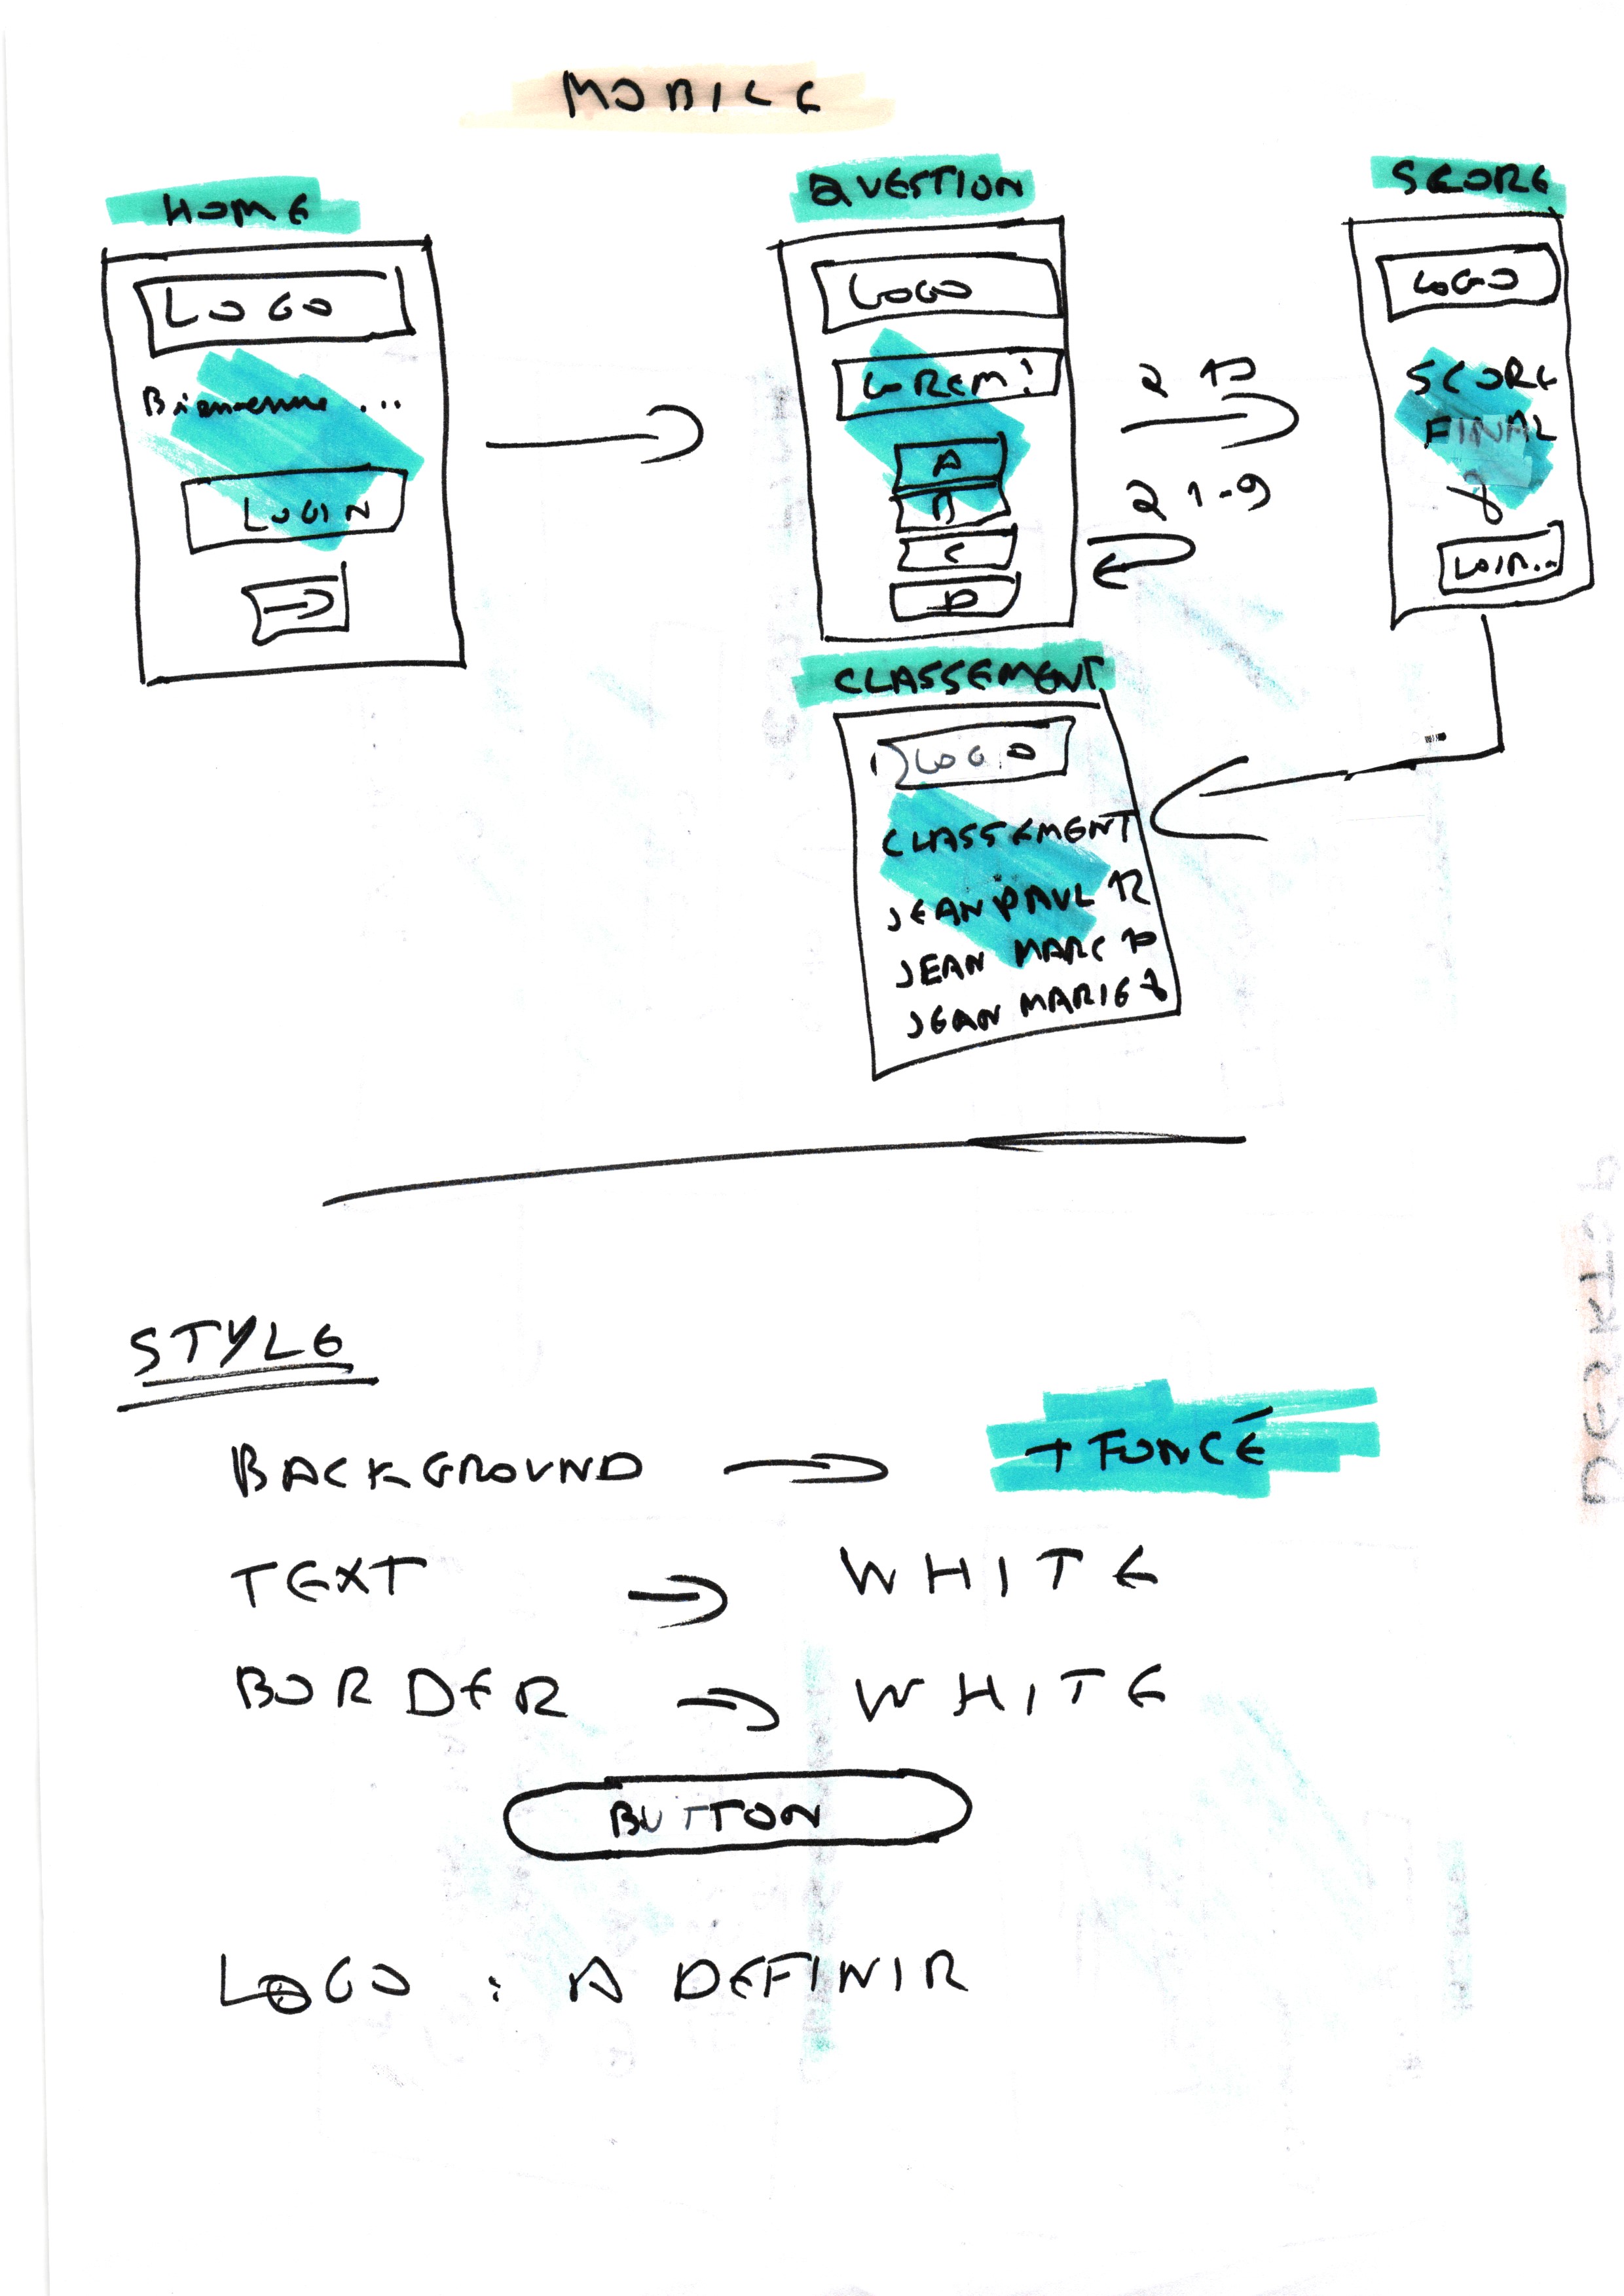 MOBILE
HOME
LOGO
Bienvenue ...
LOGIN
QUESTION
LOGO
LOREM?
A
B
C
D
Q 10
Q 1-9
SCORE
LOGO
SCORE
FINAL
8
CLASSEMENT
LOGO
CLASSEMENT
JEAN PAUL 12
JEAN MARC 10
JEAN MARIE 8
STYLE
BACKGROUND → + FONCÉ
TEXT → WHITE
BORDER → WHITE
BUTTON
LOGO : A DEFINIR